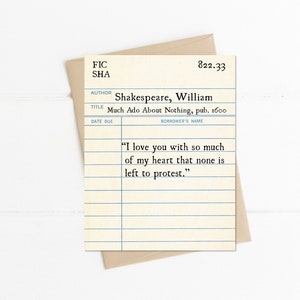 FIC 822.33
SHA
AUTHOR Shakespeare, William
TITLE Much Ado About Nothing, pub. 1600
DATE DUE BORROWER'S NAME
“I love you with so much
of my heart that none is
left to protest.”